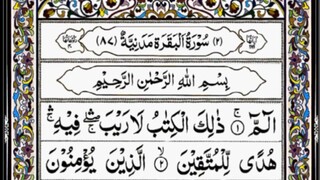 (٢) سُوْرَةُ الْبَقَرَةِ مَدَنِيَّةٌ (٨٧)
بِسْمِ اللهِ الرَّحْمٰنِ الرَّحِيْمِ
الٓمّٓ ۚ ﴿١﴾ ذٰلِكَ الْكِتٰبُ لَا رَيْبَ ۛۖ فِيْهِ ۛۚ
هُدًى لِّلْمُتَّقِيْنَ ﴿٢﴾ الَّذِيْنَ يُؤْمِنُوْنَ